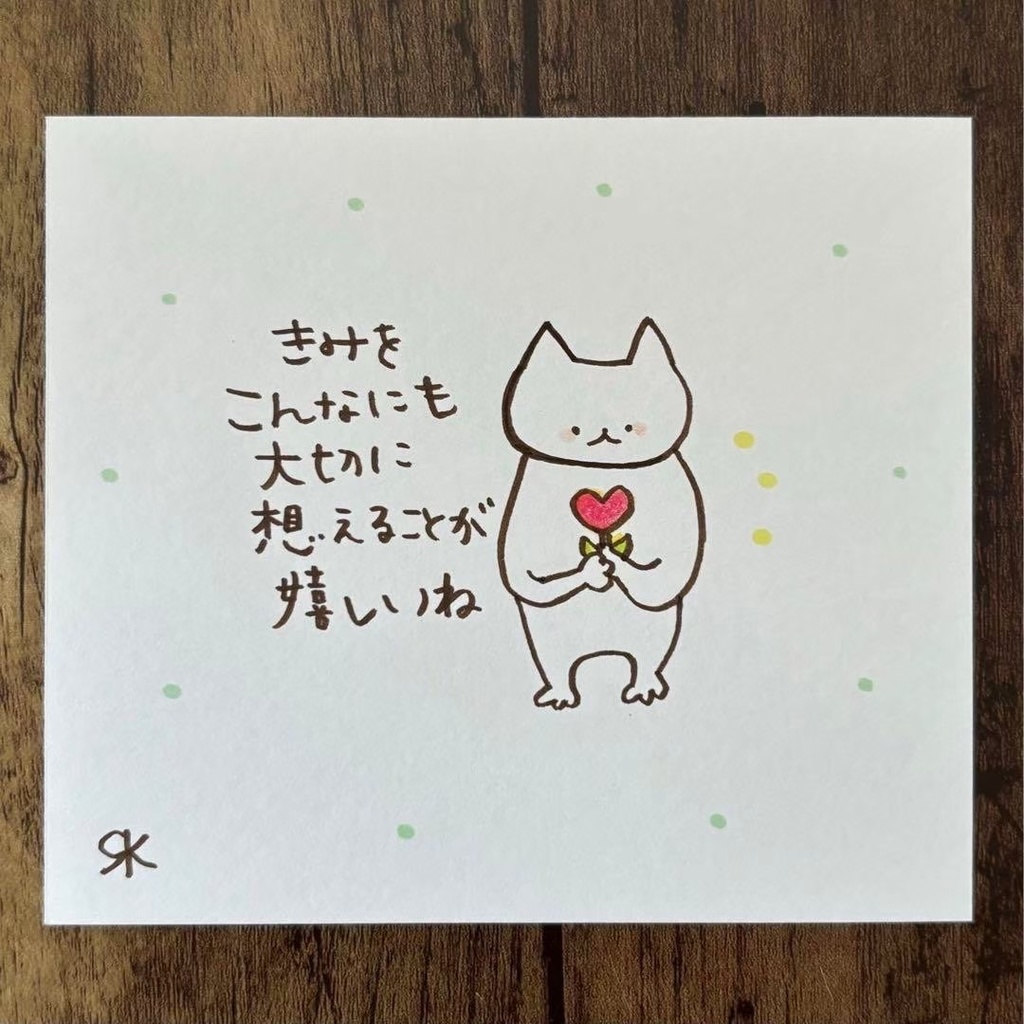 きみを
こんなにも
大切に
想えることが
嬉しいね
SK